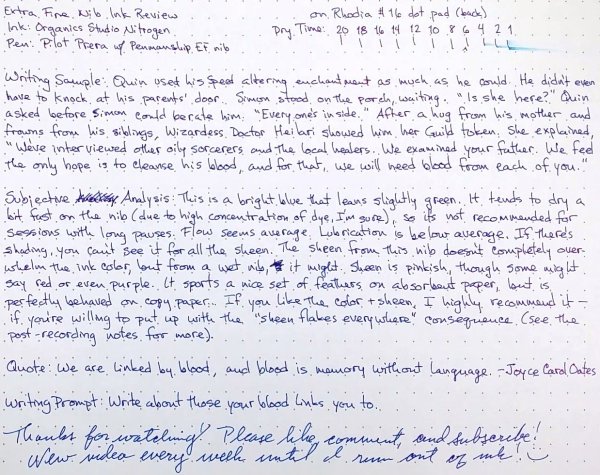 Extra Fine Nib Ink Review on Rhodia #16 dot pad (back)
Ink: Organics Studio Nitrogen Dry Time: 20 18 16 14 12 10 8 6 4 2 1
Pen: Pilot Prera w/ Penmanship EF nib
Writing Sample: Quin used his speed altering enchantment as much as he could. He didn't even
have to knock at his parents' door. Simon stood on the porch, waiting. "Is she here?" Quin
asked before Simon could berate him. "Everyone's inside." After a hug from his mother and
frowns from his siblings, Wizardess Doctor Heilari showed him her Guild token. She explained,
"We've interviewed other oily sorcerers and the local healers. We examined your father. We feel
the only hope is to cleanse his blood, and for that, we will need blood from each of you."
Subjective Analysis: This is a bright blue that leans slightly green. It tends to dry a
bit fast on the nib (due to high concentration of dye, I'm sure), so it's not recommended for
sessions with long pauses. Flow seems average. Lubrication is below average. If there's
shading, you can't see it for all the sheen. The sheen from this nib doesn't completely over-
whelm the ink color, but from a wet nib, it might. Sheen is pinkish, though some might
say red or even purple. It sports a nice set of feathers on absorbent paper, but is
perfectly behaved on copy paper... If you like the color + sheen, I highly recommend it —
if you're willing to put up with the "sheen flakes everywhere" consequence (see the
post-recording notes for more).
Quote: We are linked by blood, and blood is memory without language. -Joyce Carol Oates
Writing Prompt: Write about those your blood links you to.
Thanks for watching! Please like, comment, and subscribe!
New video every week until I run out of ink!